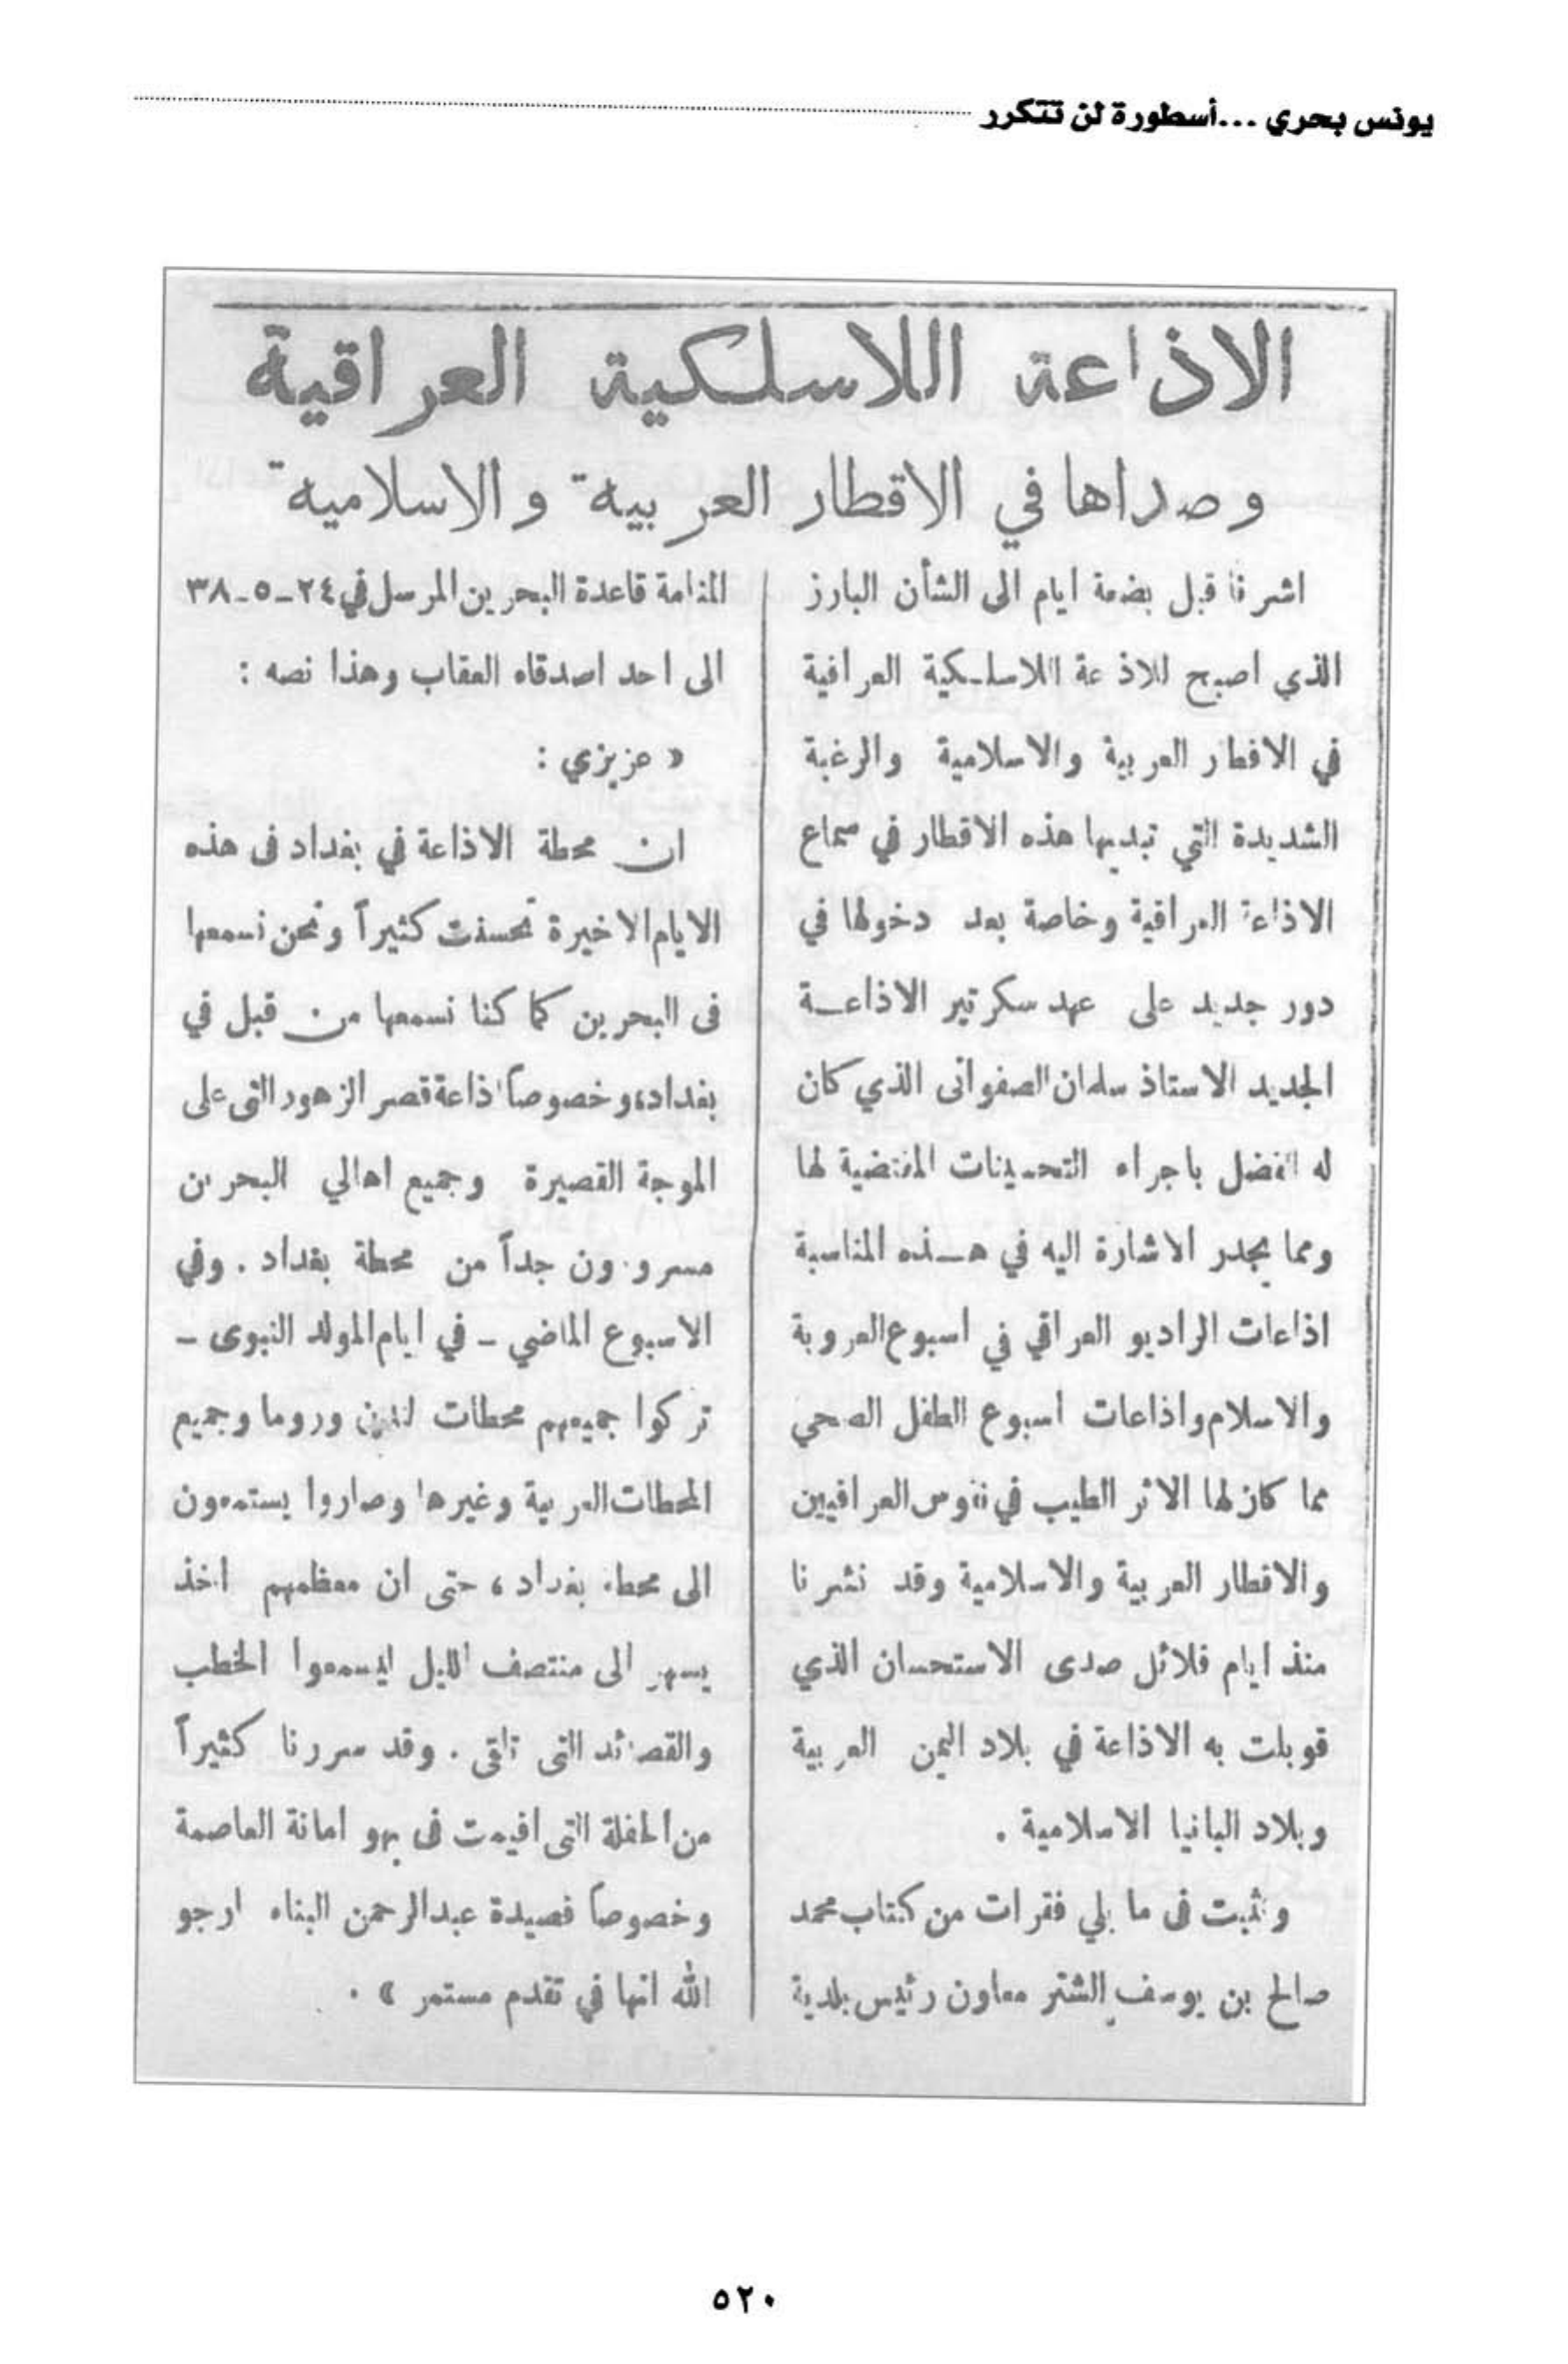 يونس بحري ...أسطورة لن تتكرر
الاذاعة اللاسلكية العراقية
وصداها في الاقطار العربية والاسلامية
اشرنا قبل بضعة ايام الى الشأن البارز
الذي اصبح للاذعة اللاسلكية العراقية
في الاقطار العربية والاسلامية والرغبة
الشديدة التي تبديها هذه الاقطار في سماع
الاذاعة العراقية وخاصة بعد دخولها في
دور جديد على عهد سكرتير الاذاعة
الجديد الاستاذ سلمان الصفوانى الذي كان
له الفضل باجراء التحسينات المقتضية لها
ومما يجدر الاشارة اليه في هذه المناسبة
اذاعات الراديو العراقي في اسبوع العروبة
والاسلام واذاعات اسبوع الطفل الصحي
مما كان لها الاثر الطيب في نفوس العراقيين
والاقطار العربية والاسلامية وقد نشرنا
منذ ايام قلائل صدى الاستحسان الذي
قوبلت به الاذاعة في بلاد اليمن العربية
وبلاد البانيا الاسلامية .
ونثبت فى ما يلي فقرات من كتاب محمد
صالح بن يوسف الشتر معاون رئيس بلدية
المنامة قاعدة البحرين المرسل في ٢٤-٥-٣٨
الى احد اصدقاء العقاب وهذا نصه :
« عزيزي :
ان محطة الاذاعة في بغداد فى هذه
الايام الاخيرة تحسنت كثيراً ونحن نسمعها
فى البحرين كما كنا نسمعها من قبل في
بغداد، وخصوصاً اذاعة قصر الزهور التى على
الموجة القصيرة وجميع اهالي البحرين
مسرورون جداً من محطة بغداد . وفي
الاسبوع الماضي - في ايام المولد النبوى -
تركوا جميعهم محطات لندن وروما وجميع
المحطات العربية وغيرها وصاروا يستمعون
الى محطة بغداد ، حتى ان معظمهم اخذ
يسهر الى منتصف الليل ليسمعوا الخطب
والقصائد التى تلقى . وقد سررنا كثيراً
من الحفلة التى اقيمت فى بهو امانة العاصمة
وخصوصاً قصيدة عبدالرحمن البناء ارجو
الله انها في تقدم مستمر » .
٥٢٠